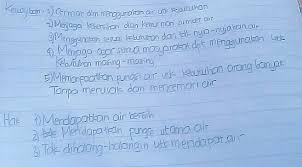 Kewajiban : 1) Cermat dan menggunakan air utk kebutuhan
2) Menjaga kebersihan dan kemurnian sumber air
3) Menggunakan sesuai kebutuhan dan tdk nya-nyiakan air
4) Menjaga agar semua masyarakat dpt menggunakan utk
kebutuhan masing-masing
5) Memanfaatkan fungsi air utk kebutuhan orang banyak
Tanpa merusak dan mencemari air
Hak : 1) Mendapatkan air bersih
2) Mendapatkan fungsi utama air
3) Tdk dihalang-halangin utk mendapat air